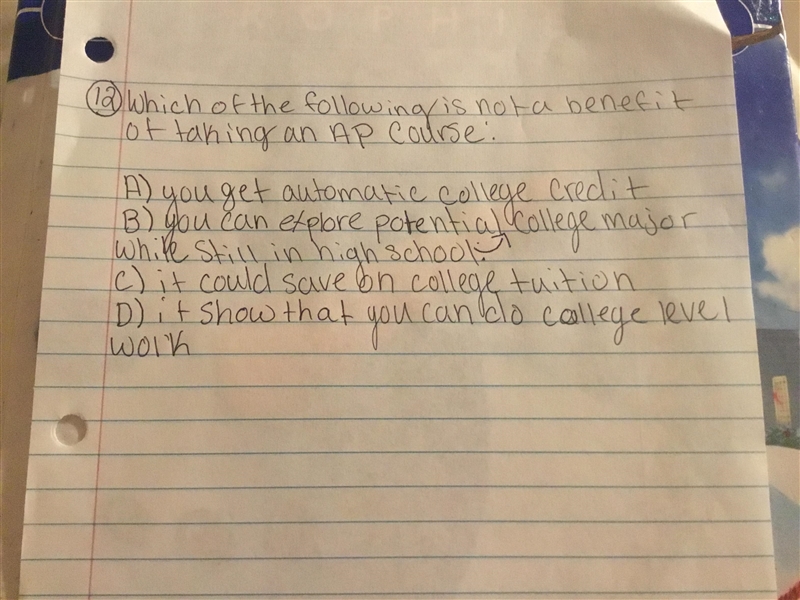 12 Which of the following is not a benefit
of taking an AP Course:
A) you get automatic college credit
B) you can explore potential college major
while still in high school.
C) it could save on college tuition
D) it show that you can do college level
work